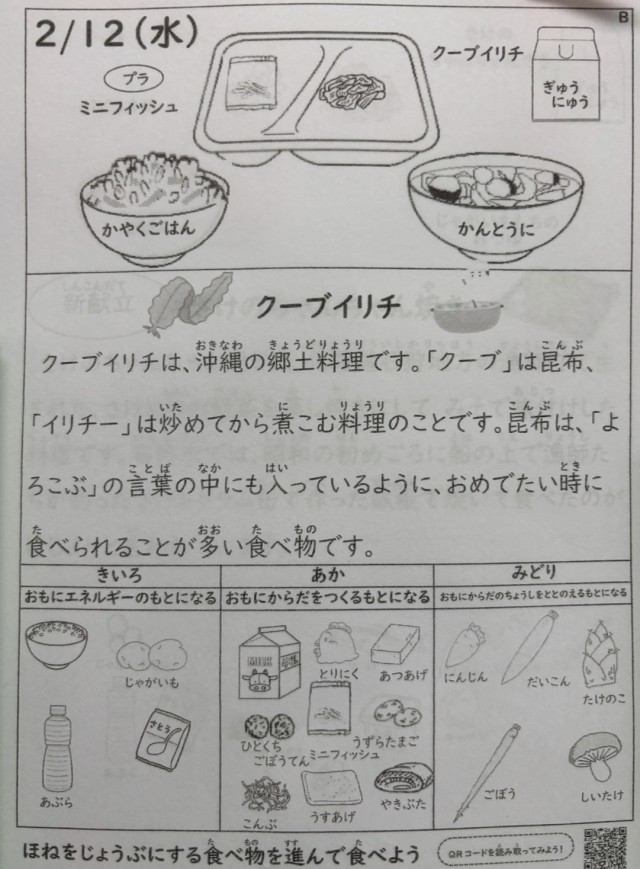 B
2/12(水)
プラ
ミニフィッシュ
クーブイリチ
ぎゅう
にゅう
かやくごはん
かんとうに
クーブイリチ
クーブイリチは、沖縄の郷土料理です。「クーブ」は昆布、
「イリチー」は炒めてから煮こむ料理のことです。昆布は、「よ
ろこぶ」の言葉の中にも入っているように、おめでたい時に
食べられることが多い食べ物です。
きいろ
おもにエネルギーのもとになる
じゃがいも
さとう
あぶら
あか
おもにからだをつくるもとになる
MILK
とりにく
あつあげ
ひとくち
ごぼうてん
ミニフィッシュ
うずらたまご
こんぶ
うすあげ
やきぶた
みどり
おもにからだのちょうしをととのえるもとになる
にんじん
だいこん
たけのこ
ごぼう
しいたけ
ほねをじょうぶにする食べ物を進んで食べよう
QRコードを読み取ってみよう!